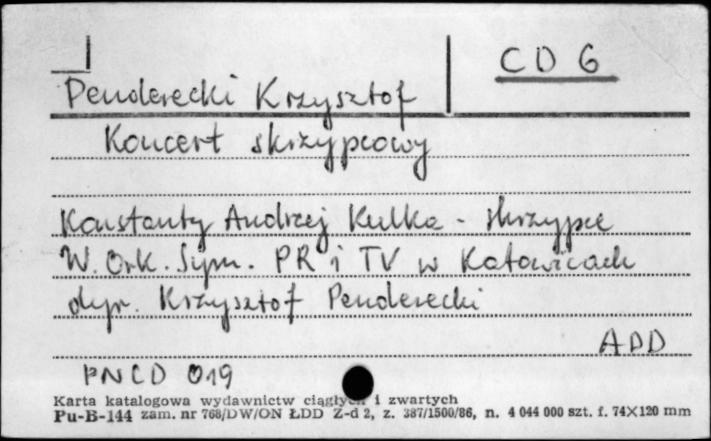 CD 6
Penderecki Krzysztof
Koncert skrzypcowy
Konstanty Andrzej Kulka - skrzypce
W. Ork. Sym. PR i TV w Katowicach
dyr. Krzysztof Penderecki
ADD
PNCD 019
Karta katalogowa wydawnictw ciągłych i zwartych
Pu-B-144 zam. nr 768/DW/ON ŁDD Z-d 2, z. 387/1500/86, n. 4 044 000 szt. f. 74×120 mm